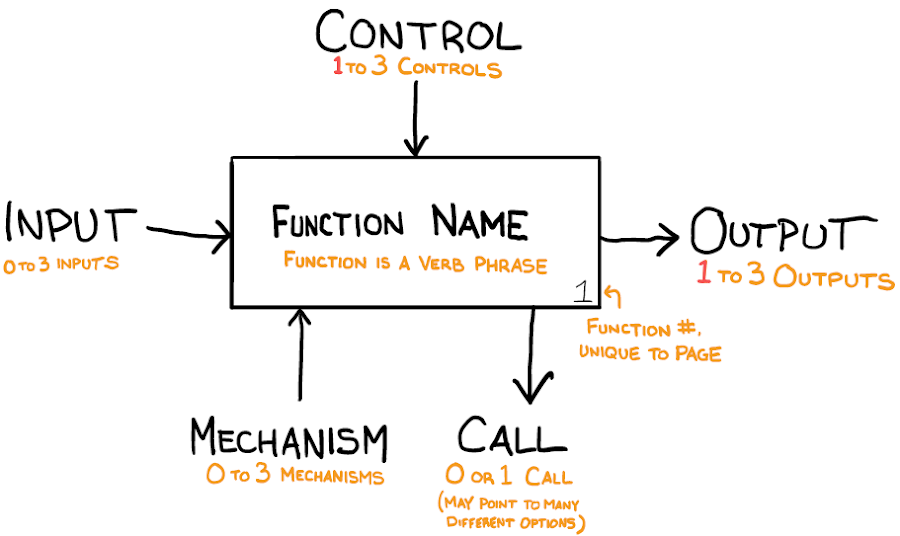 CONTROL
1 TO 3 CONTROLS
INPUT
0 TO 3 INPUTS
FUNCTION NAME
FUNCTION IS A VERB PHRASE
1
OUTPUT
1 TO 3 OUTPUTS
FUNCTION #,
UNIQUE TO PAGE
MECHANISM
0 TO 3 MECHANISMS
CALL
0 OR 1 CALL
(MAY POINT TO MANY
DIFFERENT OPTIONS)